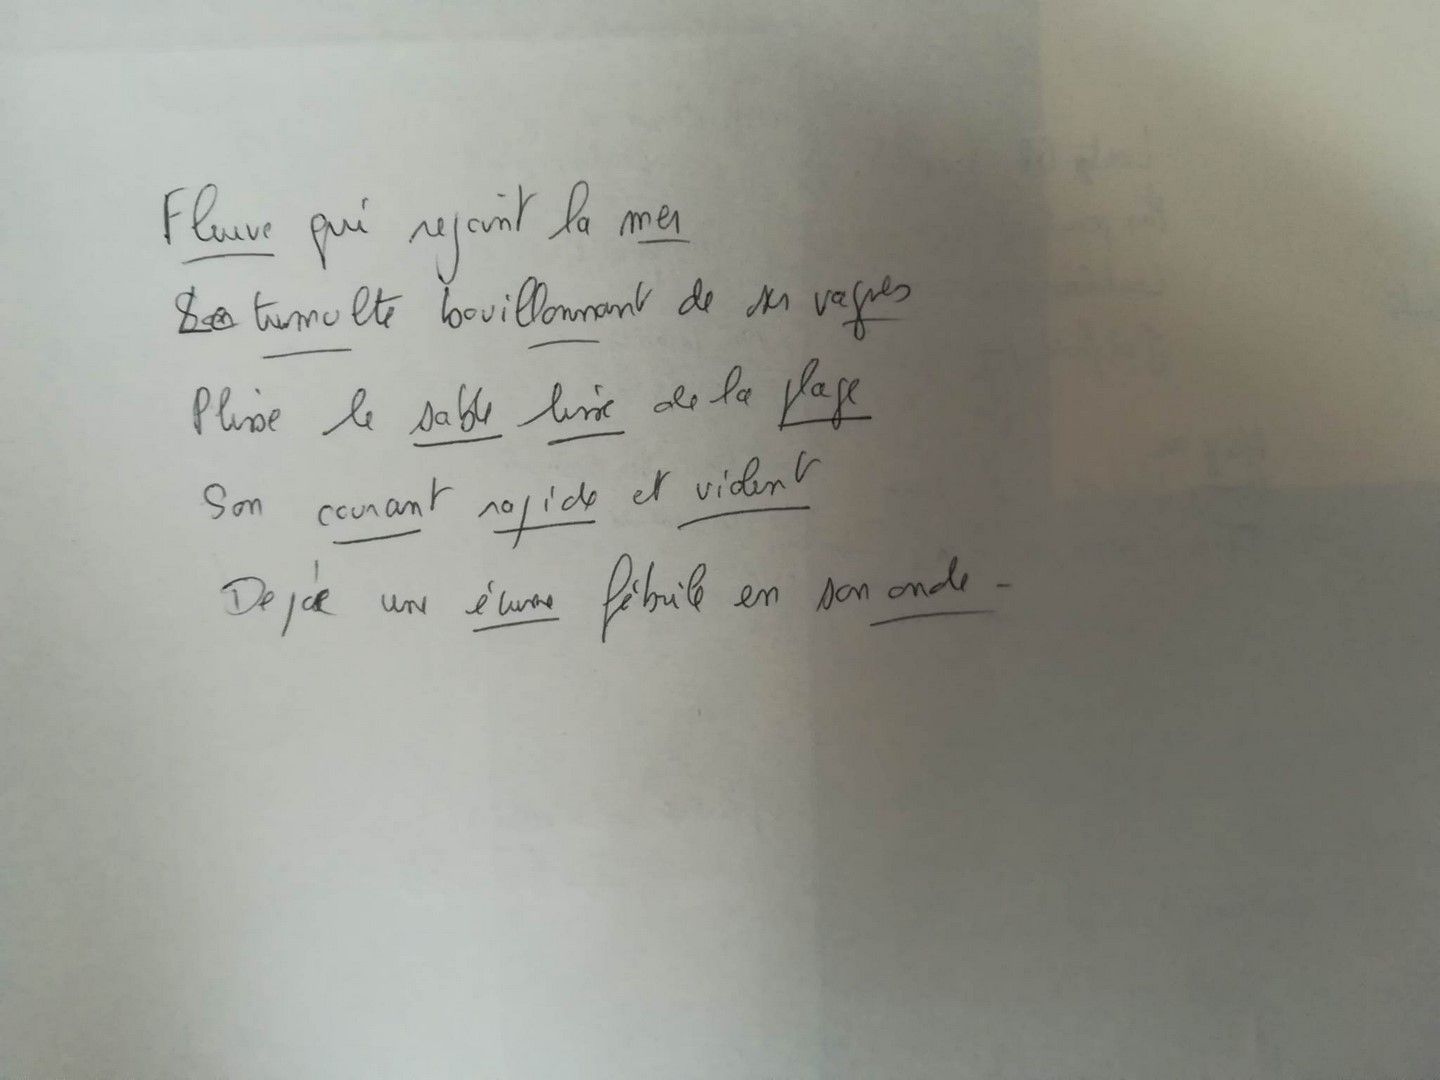 Fleuve qui rejoint la mer
Le tumulte bouillonnant de ses vagues
Plisse le sable lisse de la plage
Son courant rapide et violent
Dejà une écume fébrile en son onde -